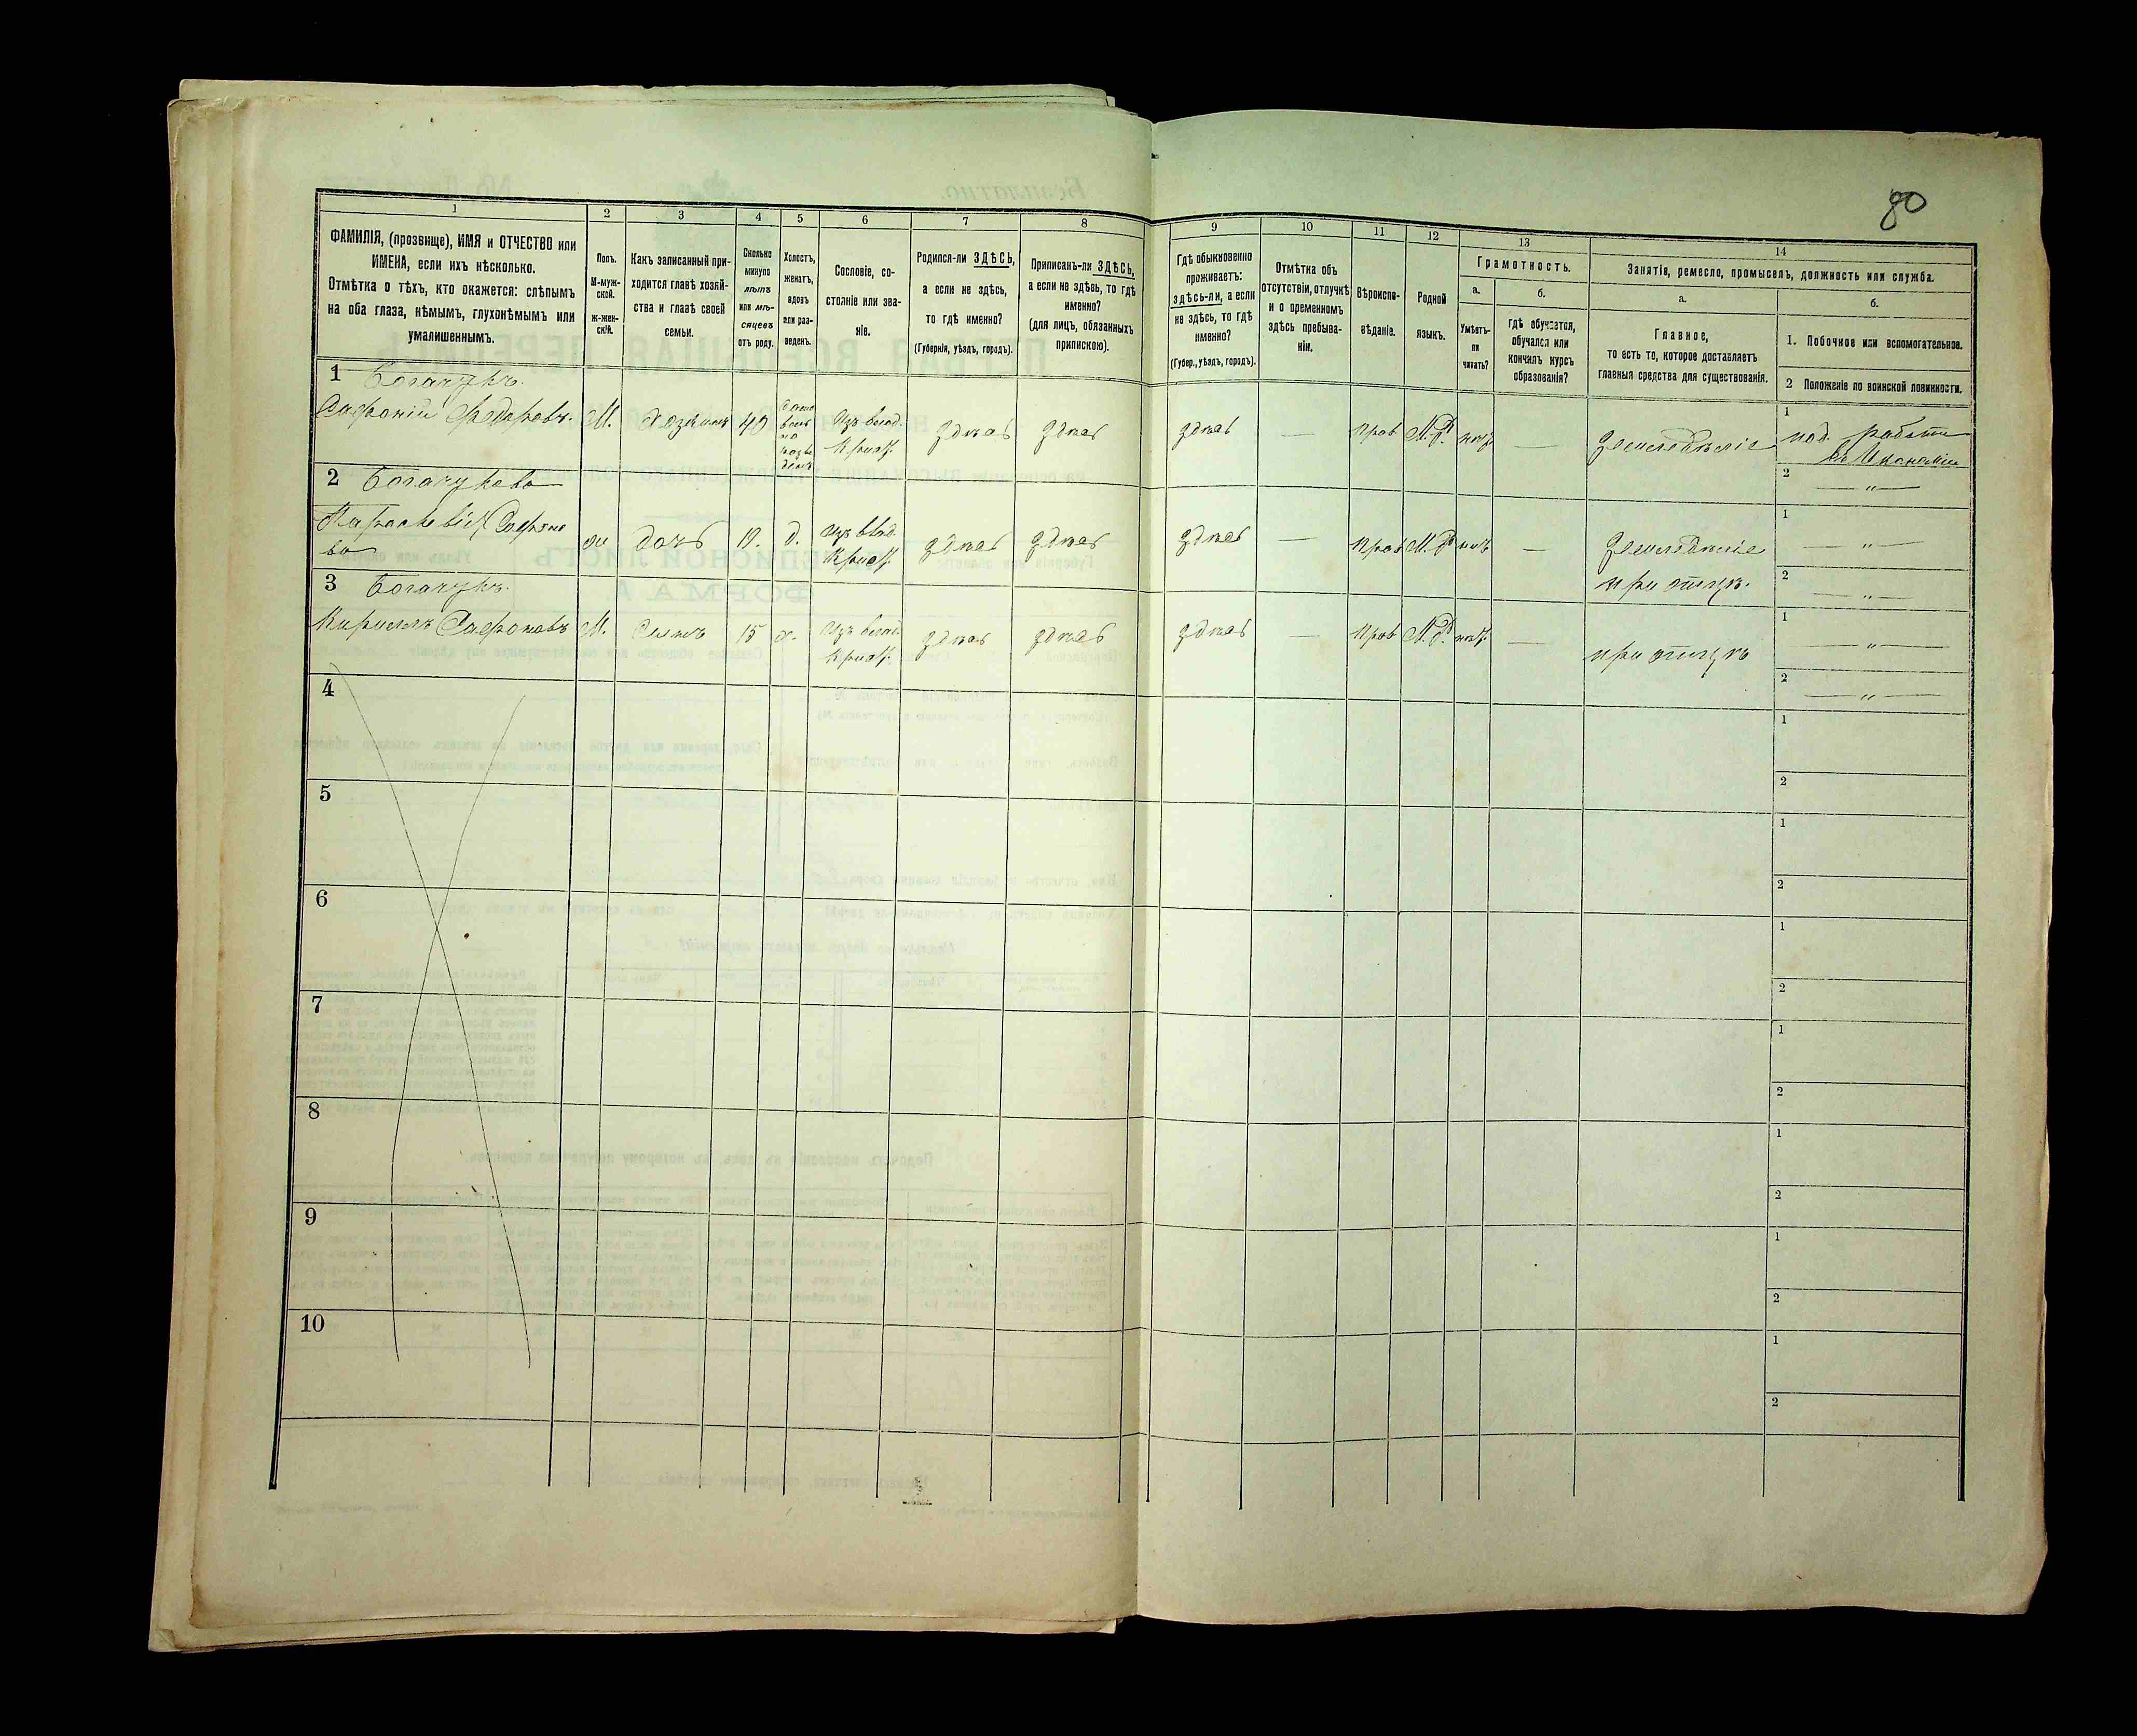 80
1
ФАМИЛІЯ, (прозвище), ИМЯ и ОТЧЕСТВО или
ИМЕНА, если ихъ нѣсколько.
Отмѣтка о тѣхъ, кто окажется: слѣпымъ
на оба глаза, нѣмымъ, глухонѣмымъ или
умалишеннымъ.
2
Полъ.
М-муж-
ской.
ж-жен-
скій.
3
Какъ записанный при-
ходится главѣ хозяй-
ства и главѣ своей
семьи.
4
Сколько
минуло
лѣтъ
или мѣ-
сяцевъ
отъ роду.
5
Холостъ,
женатъ,
вдовъ
или раз-
веденъ.
6
Сословіе, со-
стояніе или зва-
ніе.
7
Родился-ли ЗДѢСЬ,
а если не здѣсь,
то гдѣ именно?
(Губернія, уѣздъ, городъ).
8
Приписанъ-ли ЗДѢСЬ,
а если не здѣсь, то гдѣ
именно?
(для лицъ, обязанныхъ
припискою).
9
Гдѣ обыкновенно
проживаетъ:
здѣсь-ли, а если
не здѣсь, то гдѣ
именно?
(Губер., уѣздъ, городъ).
10
Отмѣтка объ
отсутствіи, отлучкѣ
и о временномъ
здѣсь пребыва-
ніи.
11
Вѣроиспо-
вѣданіе.
12
Родной
языкъ.
13
Грамотность.
а.
Умѣетъ-
ли
читать?
б.
гдѣ обучается,
обучался или
кончилъ курсъ
образованія?
14
Занятія, ремесло, промыселъ, должность или служба.
а.
Главное,
то есть то, которое доставляетъ
главныя средства для существованія.
б.
1. Побочное или вспомогательное.
2 Положеніе по воинской повинности.
1 Богачукъ.
Сафроній Федоровъ. М. Хозяинъ 49 Изъ влад. Крест. здѣсь здѣсь здѣсь — Прав М.Р. нѣтъ — Земледѣліе
1 под. работы
въ Икономіи
2 — „ —
2 Богачукова
Параскевія Сафроно
ва ж дочь 19. д. Изъ влад. Крест. здѣсь здѣсь здѣсь — Прав М.Р. нѣтъ — Земледѣліе
при отцѣ.
1 — „ —
2 — „ —
3 Богачукъ.
Кириллъ Сафроновъ М. Сынъ 15 х. Изъ влад. Крест. здѣсь здѣсь здѣсь — Прав М.Р. нѣтъ —
при отцѣ
1 — „ —
2 — „ —
4
1
2
5
1
2
6
1
2
7
1
2
8
1
2
9
1
2
10
1
2